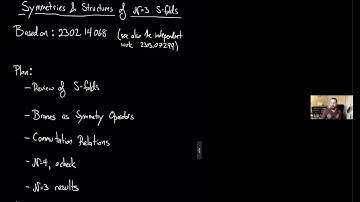 Symmetries & Structures of N=3 S-folds
Based on: 2302.14068 (see also the independent
work 2303.07299)
Plan:
- Review of S-folds
- Branes as Symmetry Operators
- Commutation Relations
- N=4, a check
- N=3 results